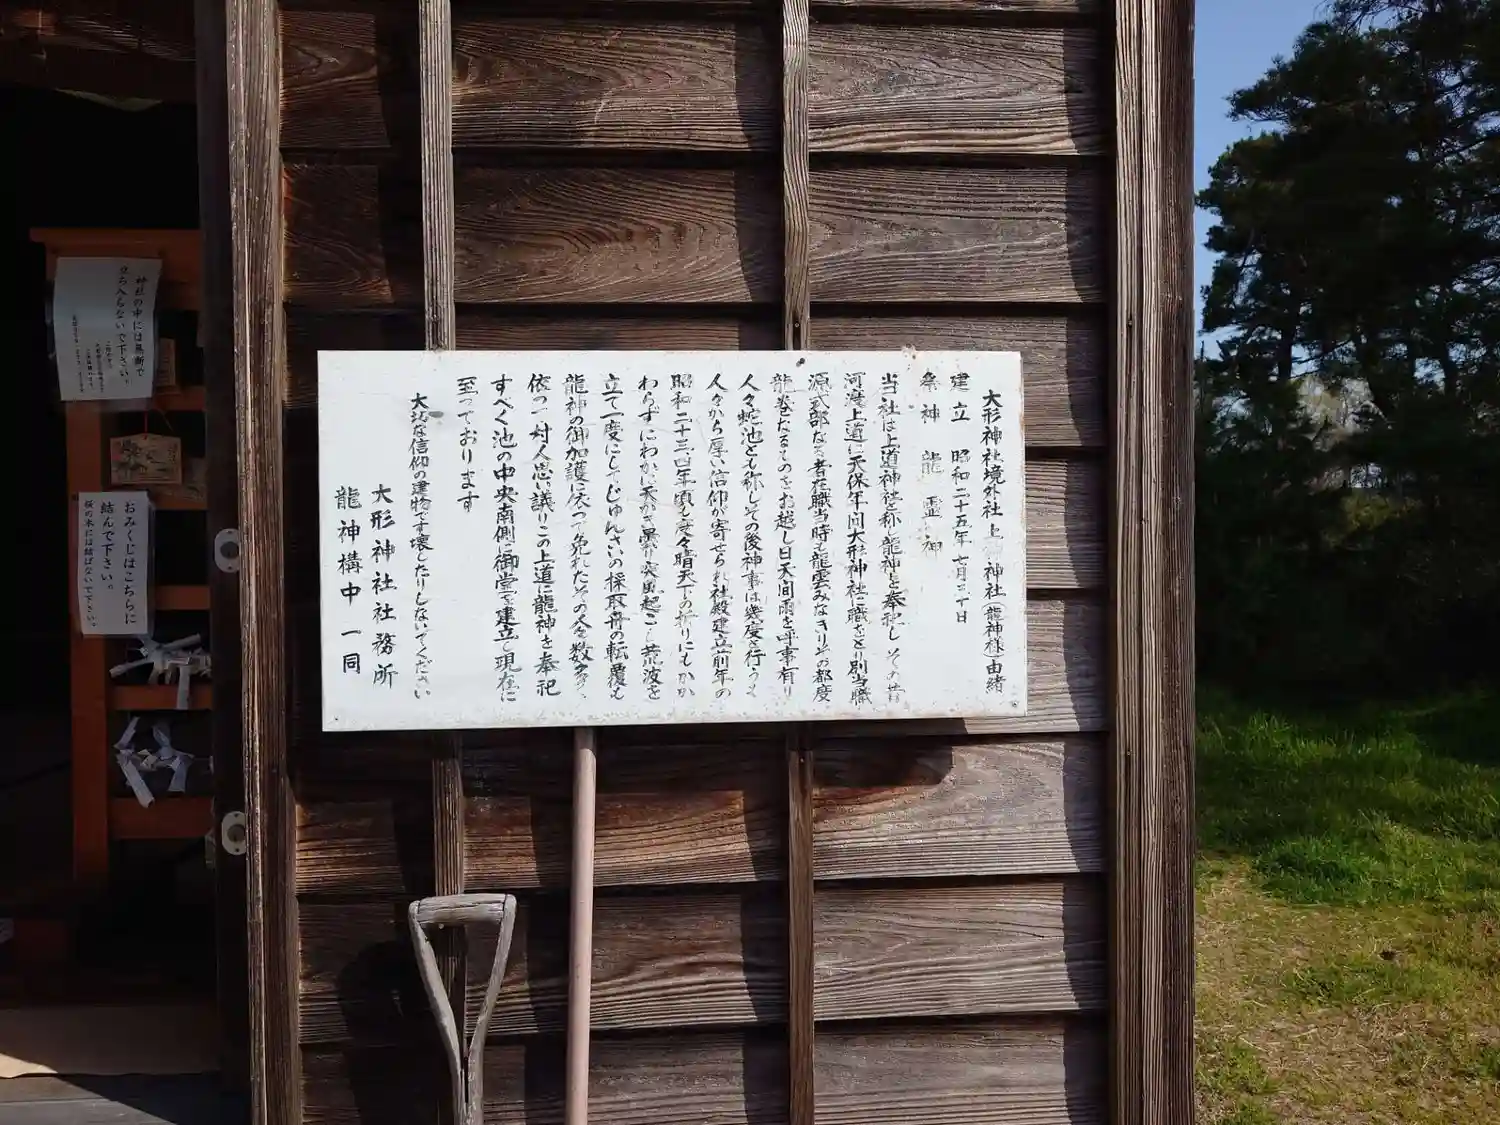 大形神社境外社 上 神社(龍神様)由緒
建立 昭和二十五年 七月三十日
祭神 龍霊神
当社は上道神社と称し龍神を奉祀し その昔
河渡上道に天保年间大形神社に職をとり別当職
源式部なる者在職当時も龍雲みなぎり その都度
龍巻たるものをお越し日天间雨を呼事有り
人々蛇池とも称しその後神事は幾度も行うも
人々から厚い信仰が寄せられ社殿建立前年の
昭和二十三、四年頃も度々晴天下の祈りにもかか
わらずにわかに天かき曇り突風起こし荒波を
立て一度にしてじゅんさいの採取舟の転覆も
龍神の御加護に依って免れたその人々数多く、
依って村人思い議りこの上道に龍神を奉祀
すべく池の中央南側に御堂を建立し現在に
至っております
大切な信仰の建物です壊したりしないでください
大形神社社務所
龍神構中一同
神社の中には無断で
立ち入らないで下さい。
おみくじはこちらに
結んで下さい。
桜の木には結ばないで下さい。